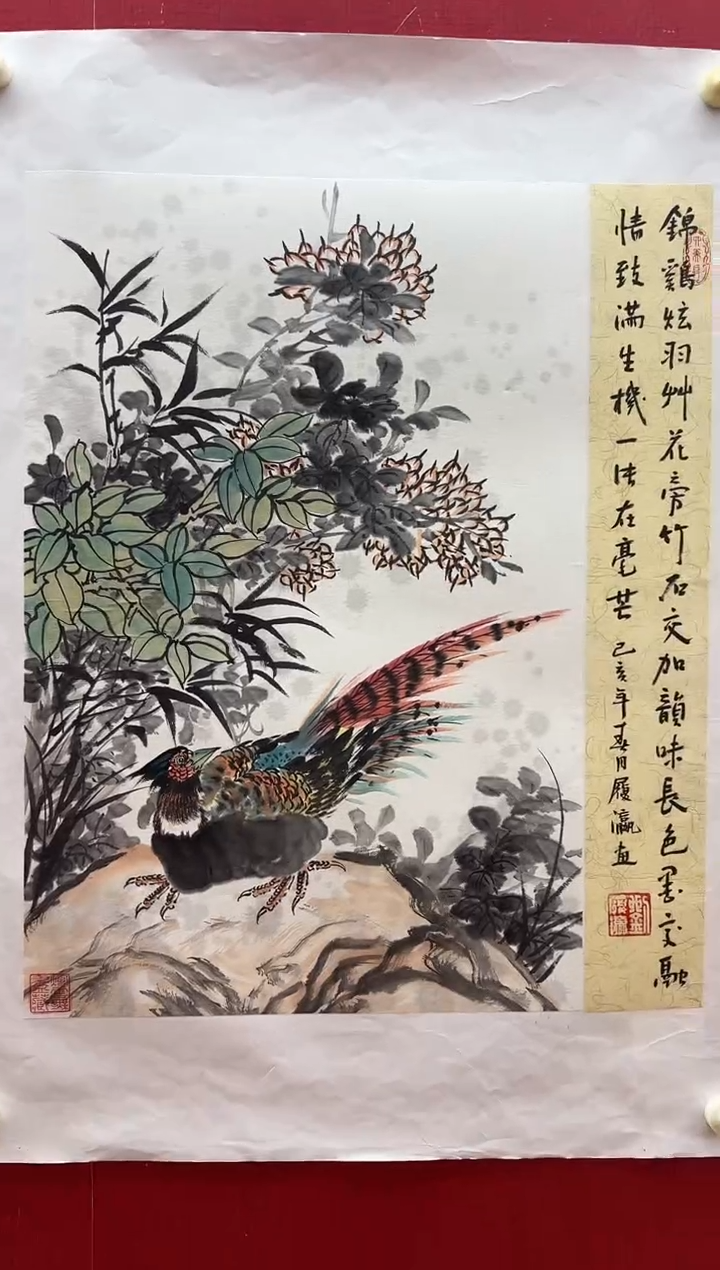 錦鷄炫羽艸花旁竹石交加韻味長色墨交融
情致滿生機一法在毫芒己亥年春月履瀛画